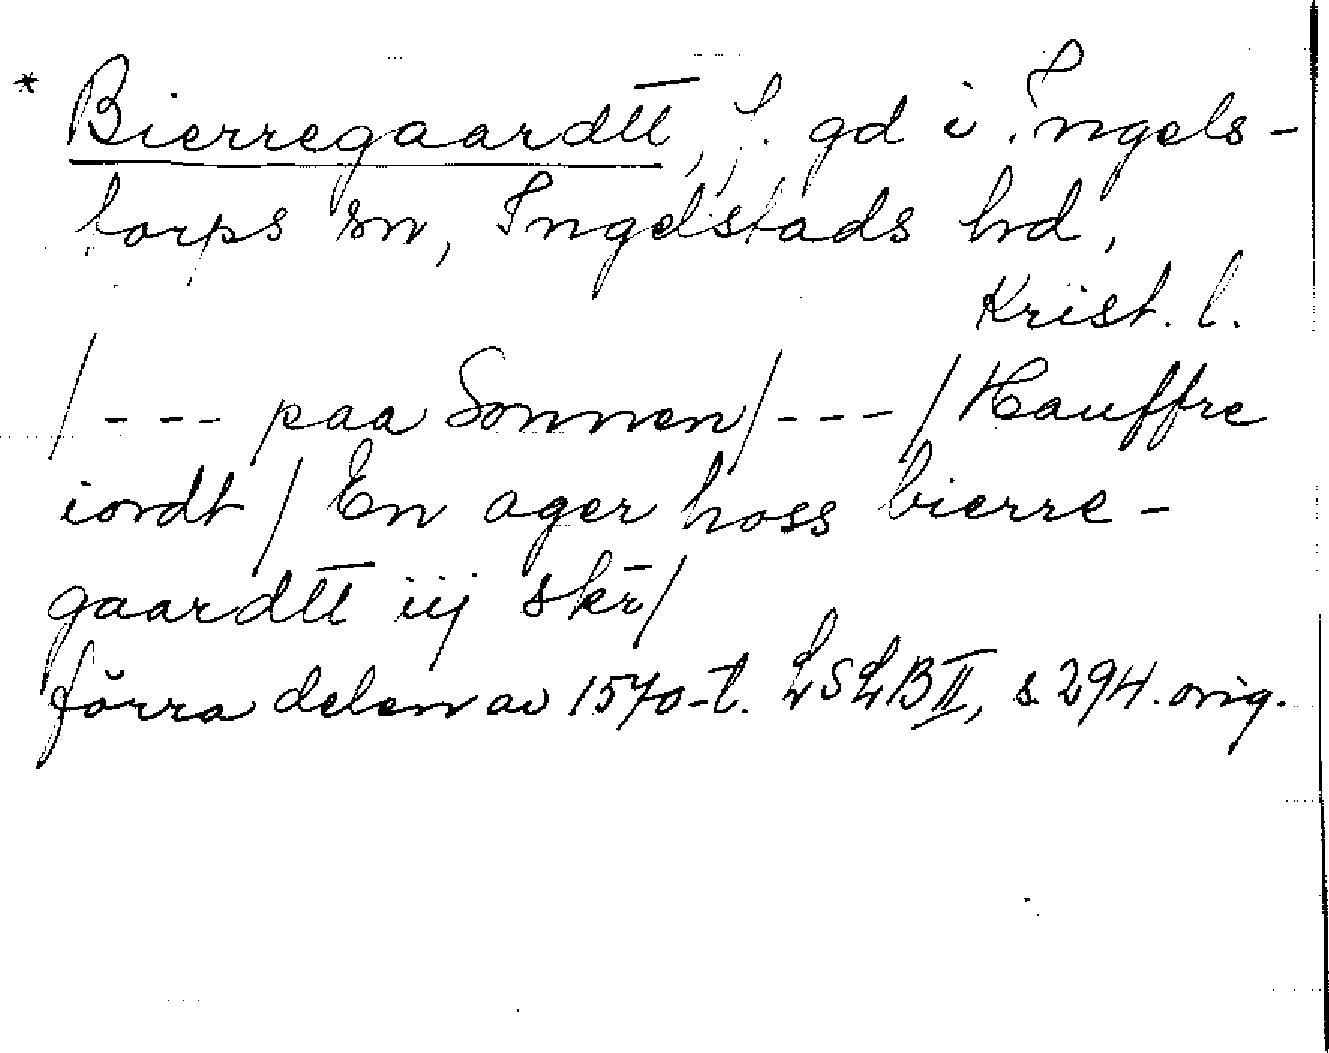 * Bierregaardtt̅, f. gd i Ingels-
torps sn, Ingelstads hd,
Krist. l.
/--- paa Sonnen/---/Hauffre
iordt/ En ager hoss bierre-
gaardtt̅ iij skr̅/
förra delen av 1570-t. LSLB II, s 294. orig.